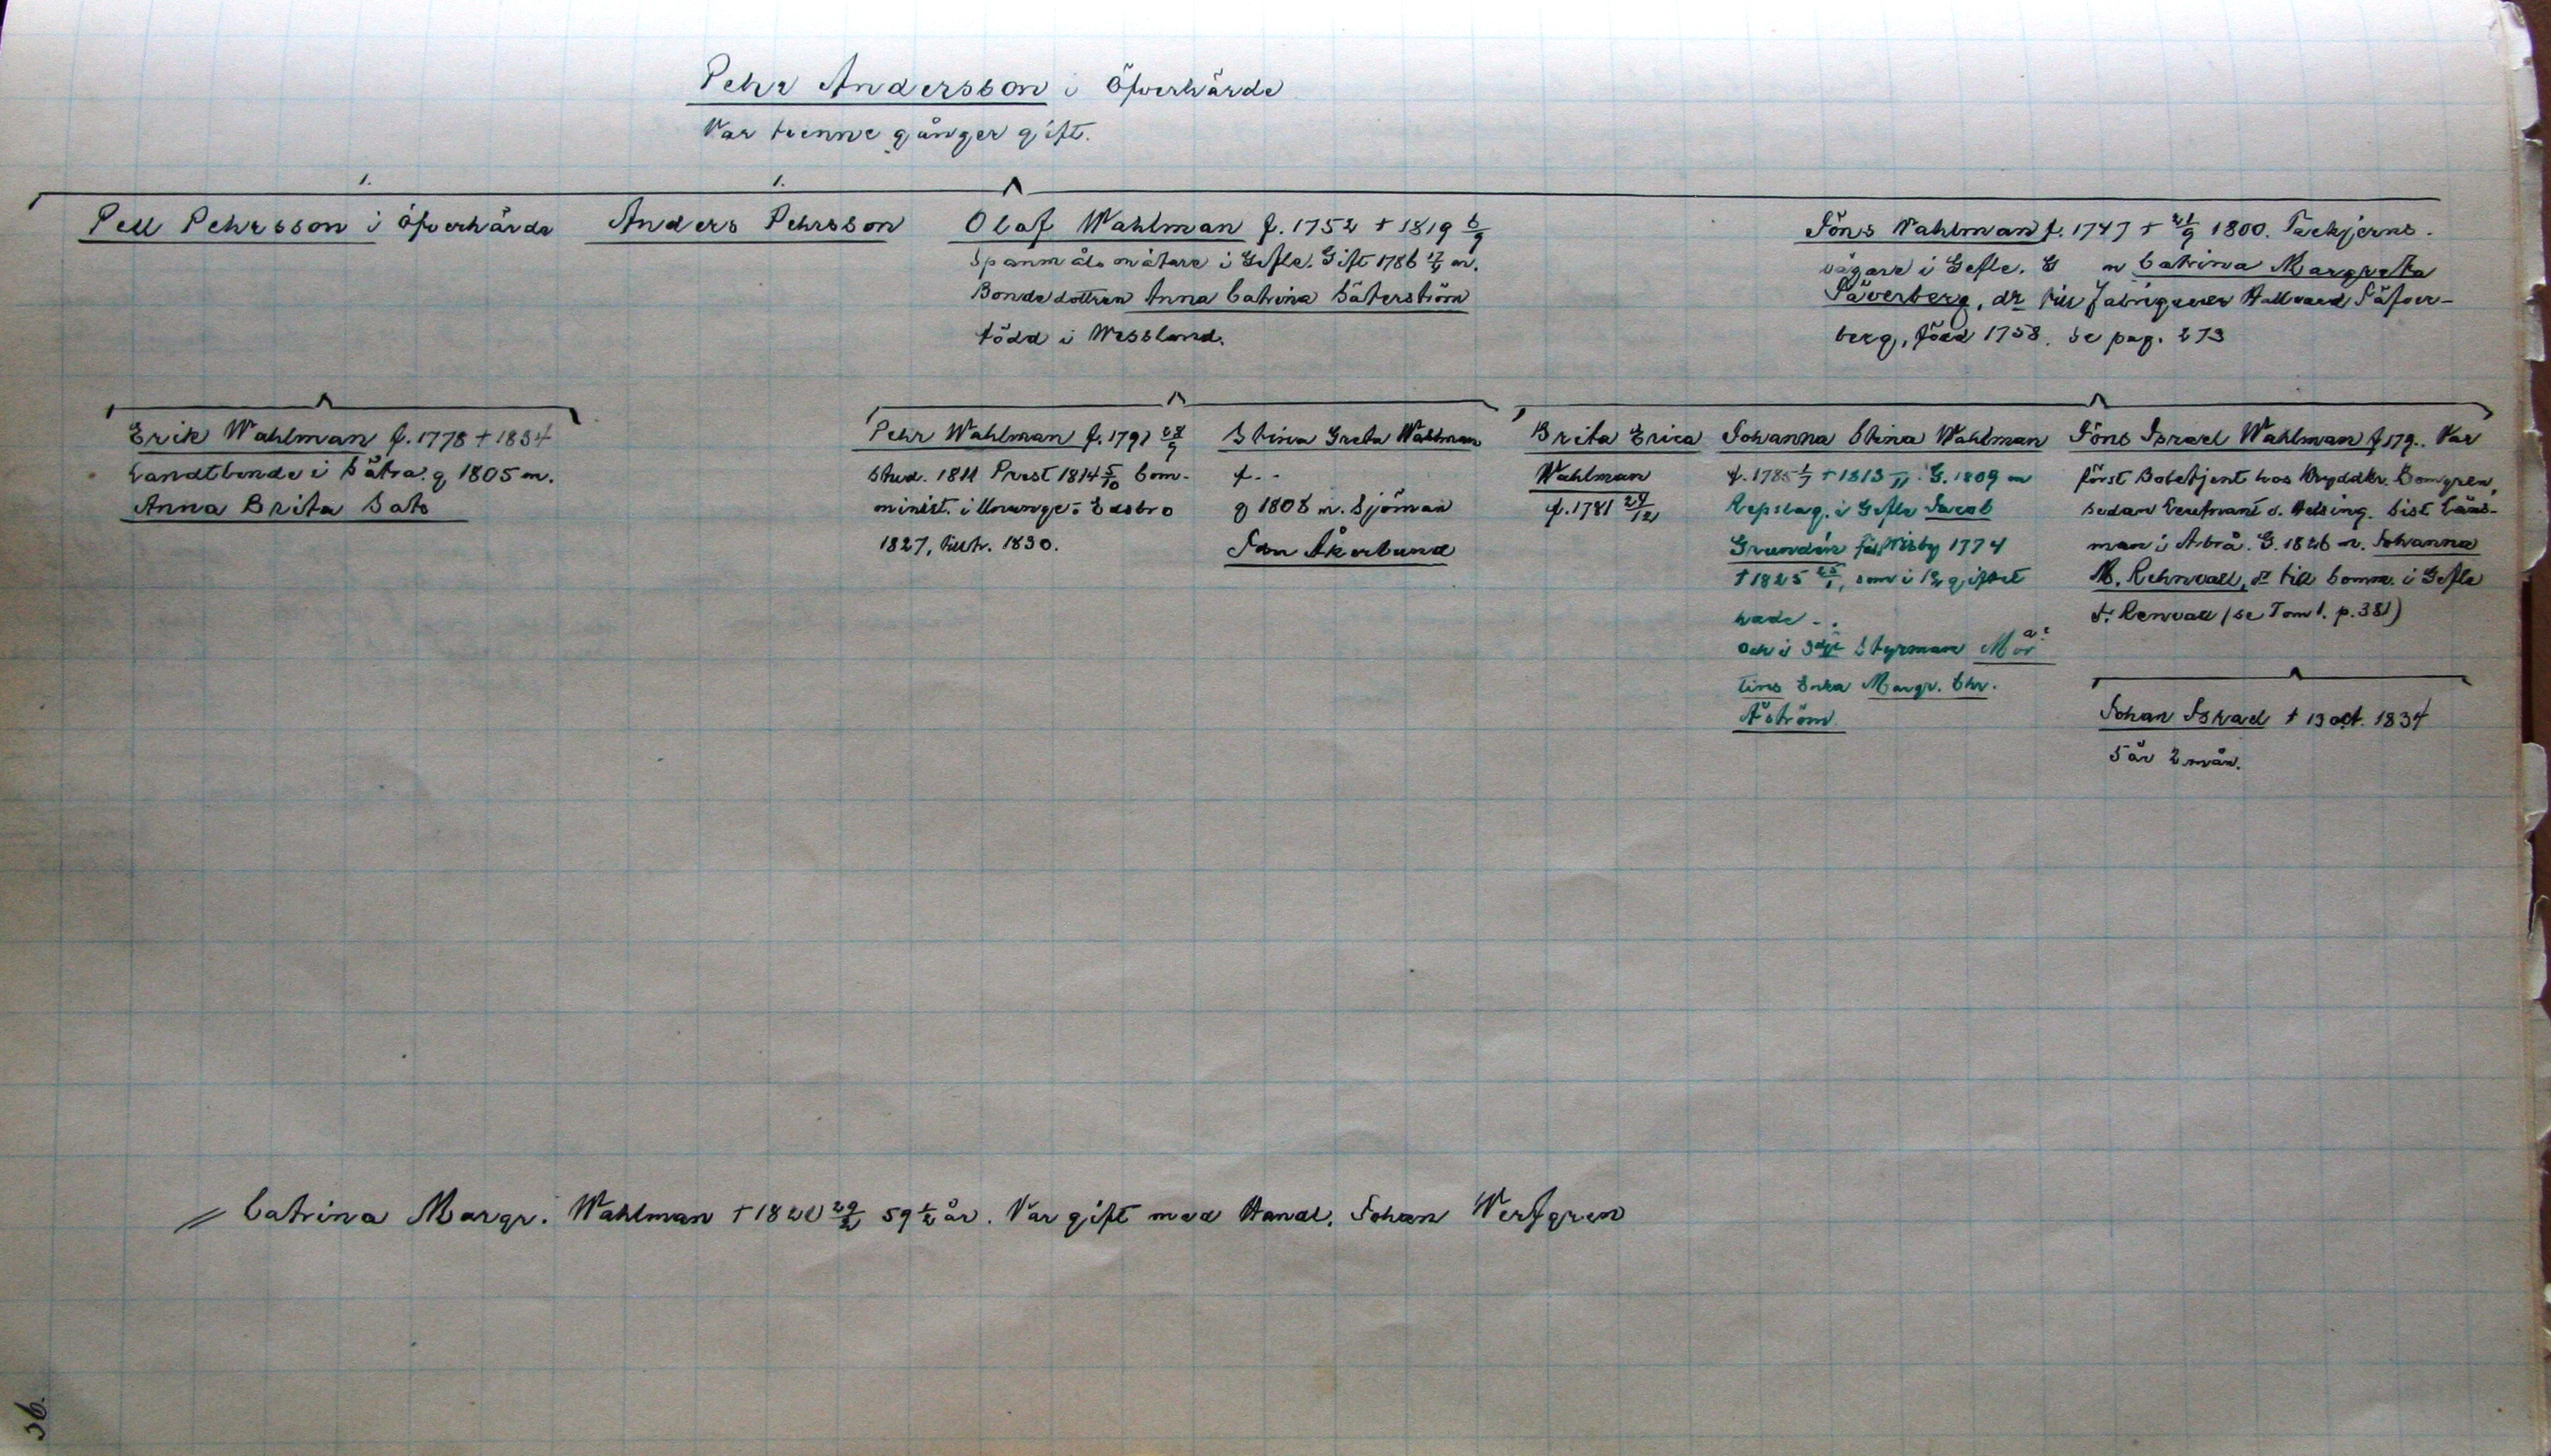 Pehr Andersson i Öfverhärde
Var trenne gånger gift.
1.
1.
Pell Pehrsson i Öfverhärde
Anders Pehrsson
Olof Wahlman f. 1752 † 1819 6/9
Spannmålsmätare i Gefle. Gift 1786 m.
Bondedottren Anna Catrina Säterström
född i Wessland.
Jöns Wahlman f. 1747 † 21/9 1800. Tackjerns-
vägare i Gefle. G m Catrina Margreta
Säverberg, dr till Fabriqueur Hallvard Säfver-
berg, född 1758. Se pag. 273
Erik Wahlman f. 1778 † 1834
Landtbonde i Sätra. g 1805 m.
Anna Brita Sats
Pehr Wahlman f. 1791 28/9
Stud. 1811 Prest 1814 5/10 Com-
minist. i Ununge o Edsbro
1827, tilltr. 1830.
Stina Greta Wahlman
f. - -
g 1808 m. Sjöman
Jan Åkerlund
Brita Erica
Wahlman
f. 1781 24/12
Johanna Stina Wahlman
f. 1785 1/7 † 1813 /11. G. 1809 m
Repslag. i Gefle Jacob
Grundén född Wisby 1774
† 1825 25/1, som i 1a giftet
hade - .
och i 3dje Styrman Mår-
tins Enka Margr. Chr.
Åström
Jöns Israel Wahlman f 179.. Var
först Bobetjent hos Kryddkr. Bomgren,
sedan Lieutnant v. Helsing. sist Läns-
man i Arbrå. G. 1826 m. Johanna
M. Rehnvall, dr till Comm. i Gefle
J. Renvall (se Tom 1. p. 381)
Johan Israel † 13 oct. 1834
5 år 2 mån.
// Catrina Margr. Wahlman † 1820 29/2 59 1/2 år. Var gift med Handl. Johan Werfgren
36.